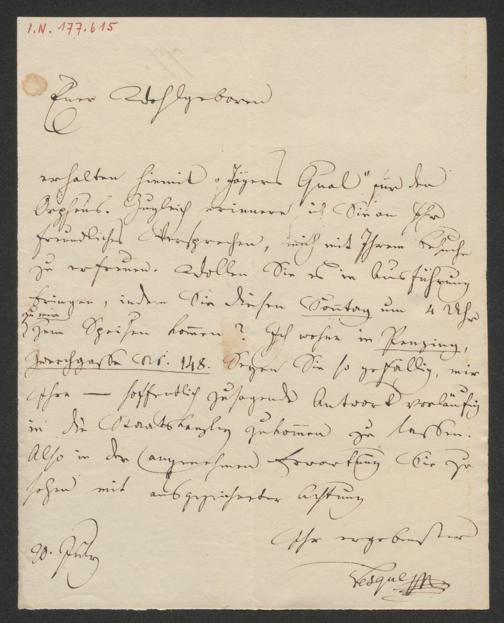 I.N. 177.615
Euer Wohlgeboren
erhalten hiemit "Jägers Qual" für den
Orpheus. Zugleich erinnere ich Sie an Ihr
freundliches Versprechen, mich mit Ihrem Besuche
zu erfreuen. Wollen Sie es in Ausführung
bringen, indem Sie diesen Sonntag um 4 Uhr
zu mir
zum Speisen kommen? Ich wohne in Penzing,
Nr. 148. Seyen Sie so gefällig, mir
Ihre — hoffentlich zusagende Antwort vorläufig
in die Staatskanzley zukommen zu lassen.
Also in der angenehmen Erwartung Sie zu
sehen mit ausgezeichneter Achtung
Ihr ergebenster
20. July
Vesque